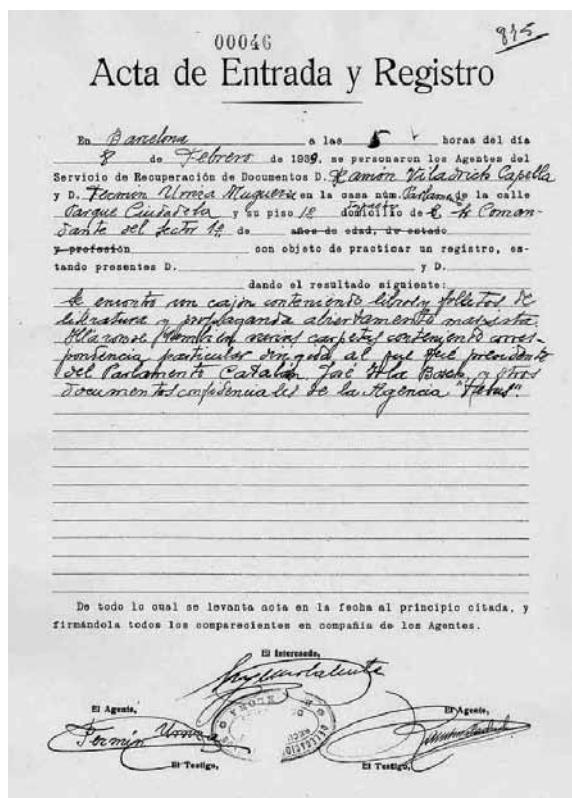 00046
815
Acta de Entrada y Registro
En Barcelona a las 5 horas del día
8 de Febrero de 1939, se personaron los Agentes del
Servicio de Recuperación de Documentos D. Ramón Viladrich Capella
y D. Fermin Urniza Muguerza en la casa núm. Parlamen de la calle
Parque Ciudadela y su piso 1º domicilio de Coman-
dante del Sector 1º de años de edad, de estado
y profesión con objeto de practicar un registro, es-
tando presentes D. y D.
dando el resultado siguiente:
Se encontro un cajón conteniendo libros y folletos de
literatura y propaganda abiertamente marxista.
también varias carpetas conteniendo corres-
pondencia particular dirigida al que fué presidente
del Parlamento Catalán, José Irla Bosch y otros
documentos confidenciales de la Agencia "Fabus".
De todo lo cual se levanta acta en la fecha al principio citada, y
firmándola todos los comparecientes en compañía de los Agentes.
El Interesado,
El Agente, El Agente,
Fermín Urniza
El Testigo, El Testigo,